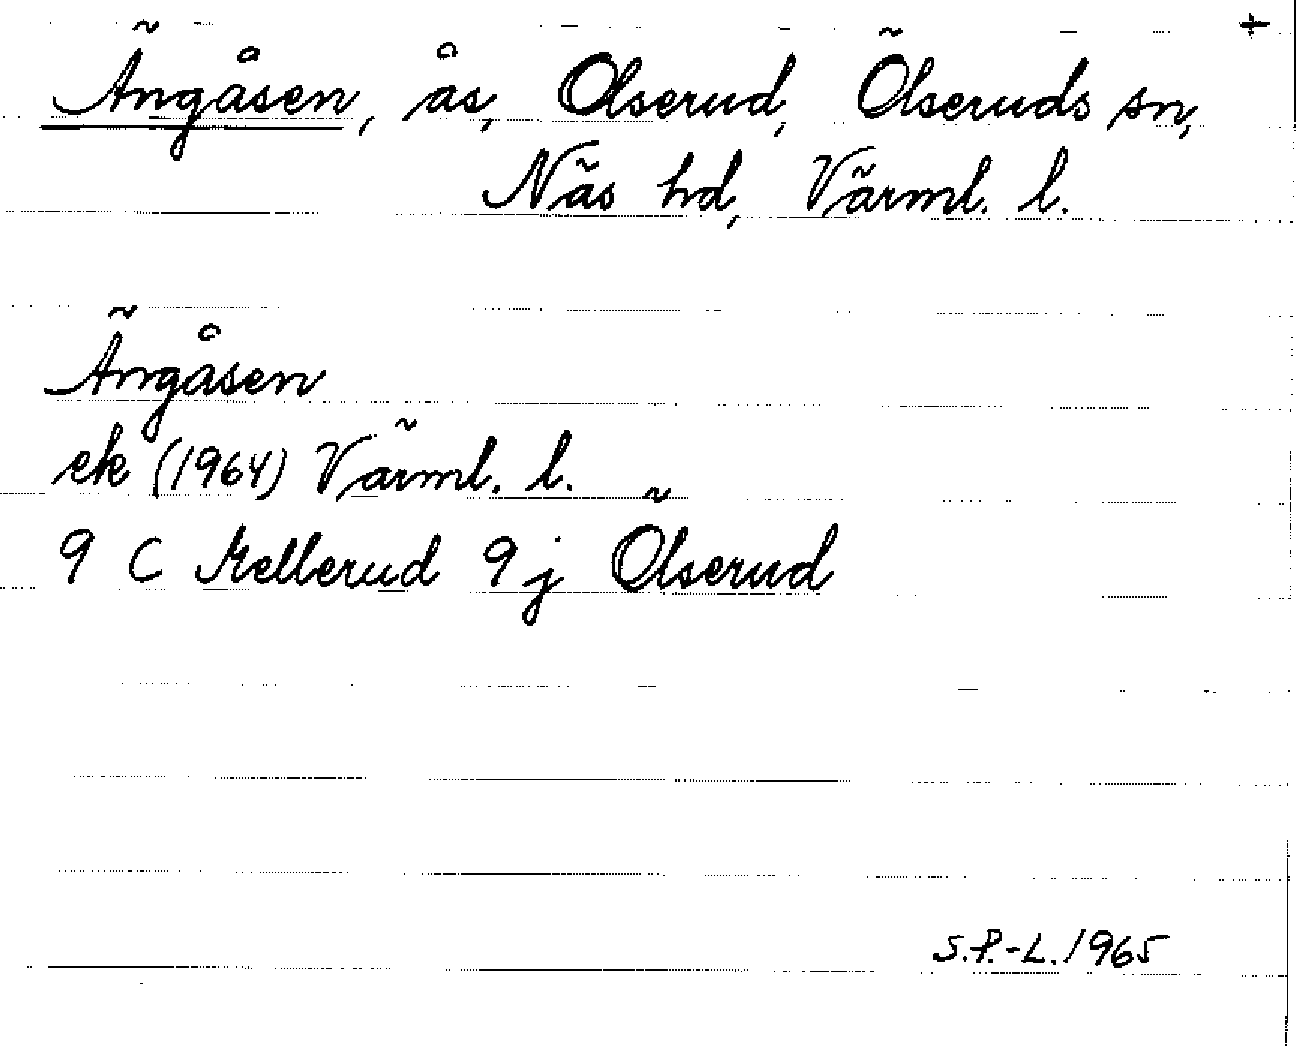 +
Ängåsen, ås, Olserud, Ölseruds sn,
Näs hd, Värml. l.
Ängåsen
ek (1964) Värml. l.
9 C Mellerud 9 j Ölserud
S.P.-L. 1965